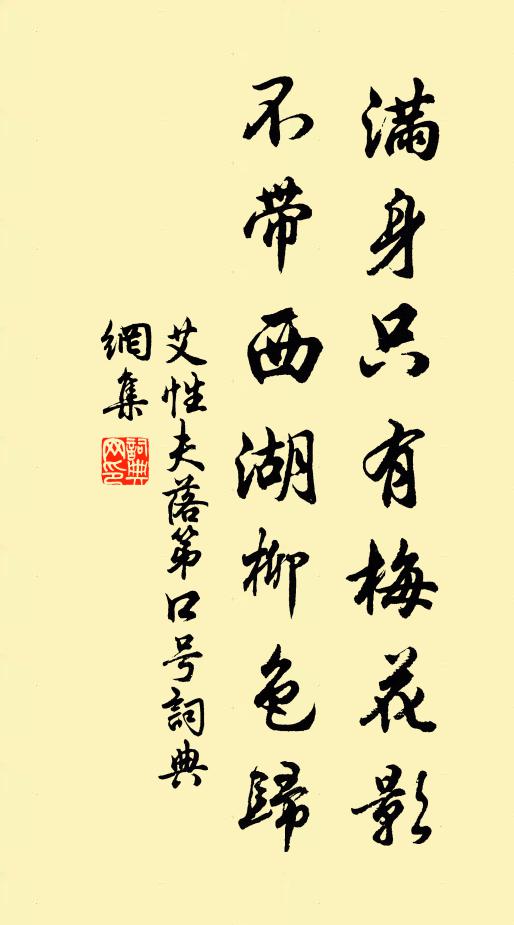 滿身只有梅花影
不带西湖柳色歸
艾性夫落第口号詞典
網集
詞典
网印